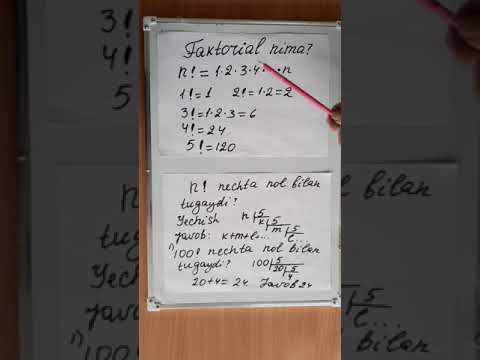 Faktorial nima?
n! = 1·2·3·4·...·n
1! = 1 2! = 1·2 = 2
3! = 1·2·3 = 6
4! = 24
5! = 120
n! nechta nol bilan
tugaydi?
Yechish n 5 k 5 m 5 l...
Javob: k+m+l...
1) 100! nechta nol bilan
tugaydi? 100 5 20 5 4
20+4 = 24 Javob 24
3!
4!
5!
5
l...